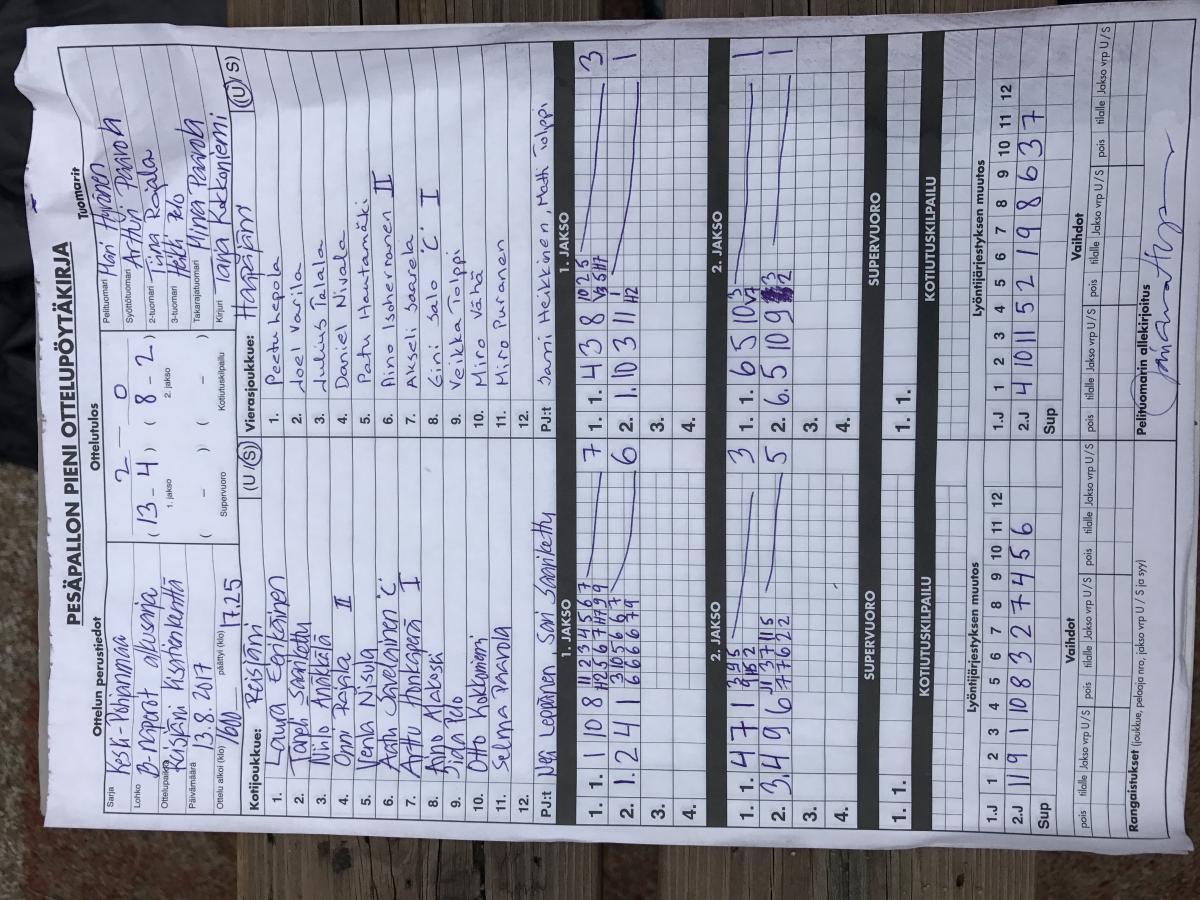 PESÄPALLON PIENI OTTELUPÖYTÄKIRJA
Ottelun perustiedot
Sarja Keski-Pohjanmaa
Lohko D-naperot aluesarja
Ottelupaikka Reisjärvi
Päivämäärä 13.8.2017
Ottelu alkoi (klo) 1600 päättyi (klo) 17.25
Ottelutulos
2 – 0
( 13 – 4 ) ( 8 – 2 )
1. jakso 2. jakso
( – ) ( – )
Supervuoro Kotiutuskilpailu
Tuomarit
Pelituomari
Syöttötuomari Arttu Paarola
2-tuomari Tiina Rajala
3-tuomari
Takarajatuomari Minea Paarola
Kirjuri Tanja Kokkoniemi
Kotijoukkue: Reisjärvi (U/S)
1. Laura Eenkäinen
2. Topeli Saaripttu
3. Niilo Anäkkälä
4. Onni Rajala II
5. Venla Nisula
6. Aatu Savolainen 'C'
7. Arttu Honkaperä I
8. Aino Alakoski
9. Iida Polo
10. Otto Kokkoniemi
11. Selma Paarola
12.
PJ:t Nea Leppänen Sari Saariketty
Vierasjoukkue: Haapajärvi (U/S)
1. Peetu hepola
2. Joel Varila
3. Julius Talala
4. Daniel Nivala
5. Patu Hautamäki
6. Aino Isohernanen II
7. Akseli Saarela
8. Eini Salo 'C' I
9. Veikka Tolppi
10. Miro Vähä
11. Miro Puranen
12.
PJ:t Jarri Heikkinen, Matti Tolppi
1. JAKSO 1. JAKSO
1. 1. 1 10 8 11 2 3 4 5 6 7 7
H2 5 6 7 H7 9 9
2. 1. 2 4 1 3 10 5 6 6 7 6
6 6 6 6 7 9
3.
4.
1. 1. 4 3 8 10 2 5 3
V3 5 H7
2. 1. 10 3 11 1 1
H2
3.
4.
2. JAKSO 2. JAKSO
1. 1. 4 7 1 3 4 5 3
2. 3. 4 9 6 11 3 7 11 5 5
7 7 6 2 2
3.
4.
1. 1. 6 5 10 3 1
V7
2. 6. 5 10 9 1
3.
4.
SUPERVUORO SUPERVUORO
1. 1. 1. 1.
KOTIUTUSKILPAILU KOTIUTUSKILPAILU
Lyöntijärjestyksen muutos
1.J 1 2 3 4 5 6 7 8 9 10 11 12
2.J 11 9 1 10 8 3 2 7 4 5 6
Sup
Lyöntijärjestyksen muutos
1.J 1 2 3 4 5 6 7 8 9 10 11 12
2.J 4 10 11 5 2 1 9 8 6 3 7
Sup
Vaihdot Vaihdot
pois tilalle Jakso vrp U / S pois tilalle Jakso vrp U / S pois tilalle Jakso vrp U / S
pois tilalle Jakso vrp U / S pois tilalle Jakso vrp U / S pois tilalle Jakso vrp U / S
Rangaistukset (joukkue, pelaaja nro, jakso vrp U / S ja syy)
Pelituomarin allekirjoitus